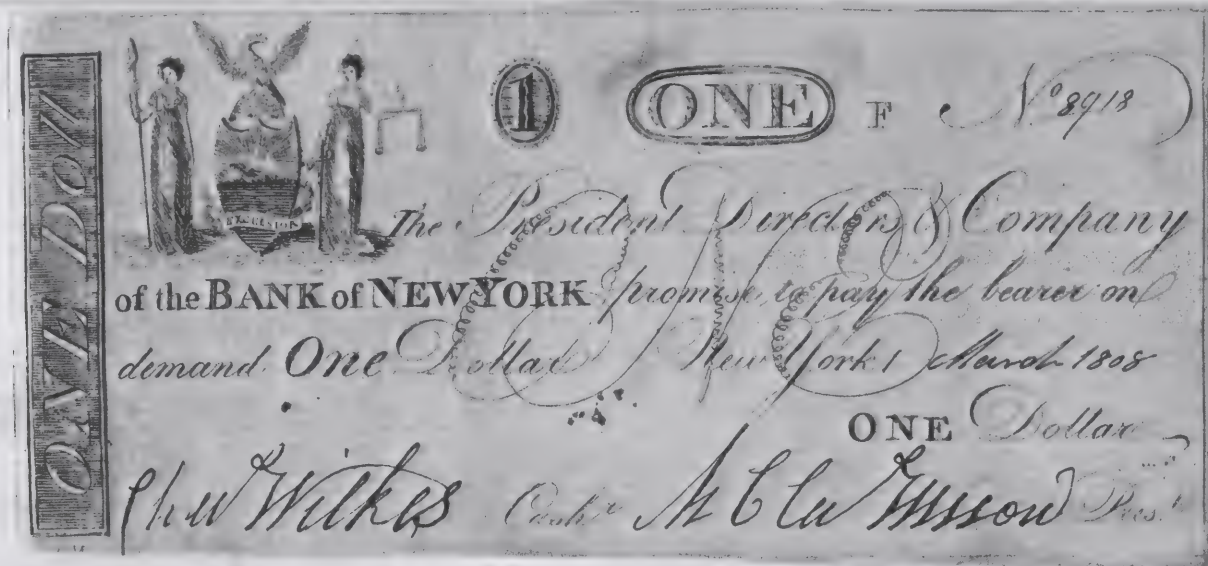 ONE Doll
1 ONE F No 8918
EXCELSIOR
The President Directors & Company
of the BANK of NEW YORK promise to pay the bearer on
demand One Dollar New York 1 March 1808
ONE
ONE Dollar
Wilkes Cashr Prest